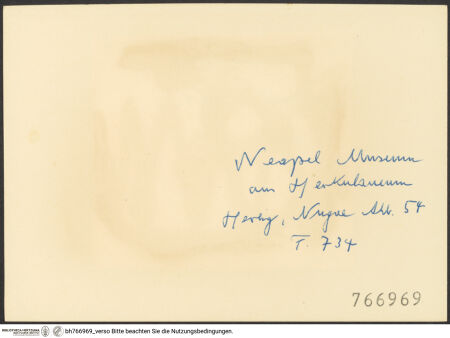 Neapel Museum
aus Herkulaneum
Herbig, Nugae Abb. 54
T. 734
766969
BIBLIOTHECA HERTZIANA
bh766969_verso Bitte beachten Sie die Nutzungsbedingungen.